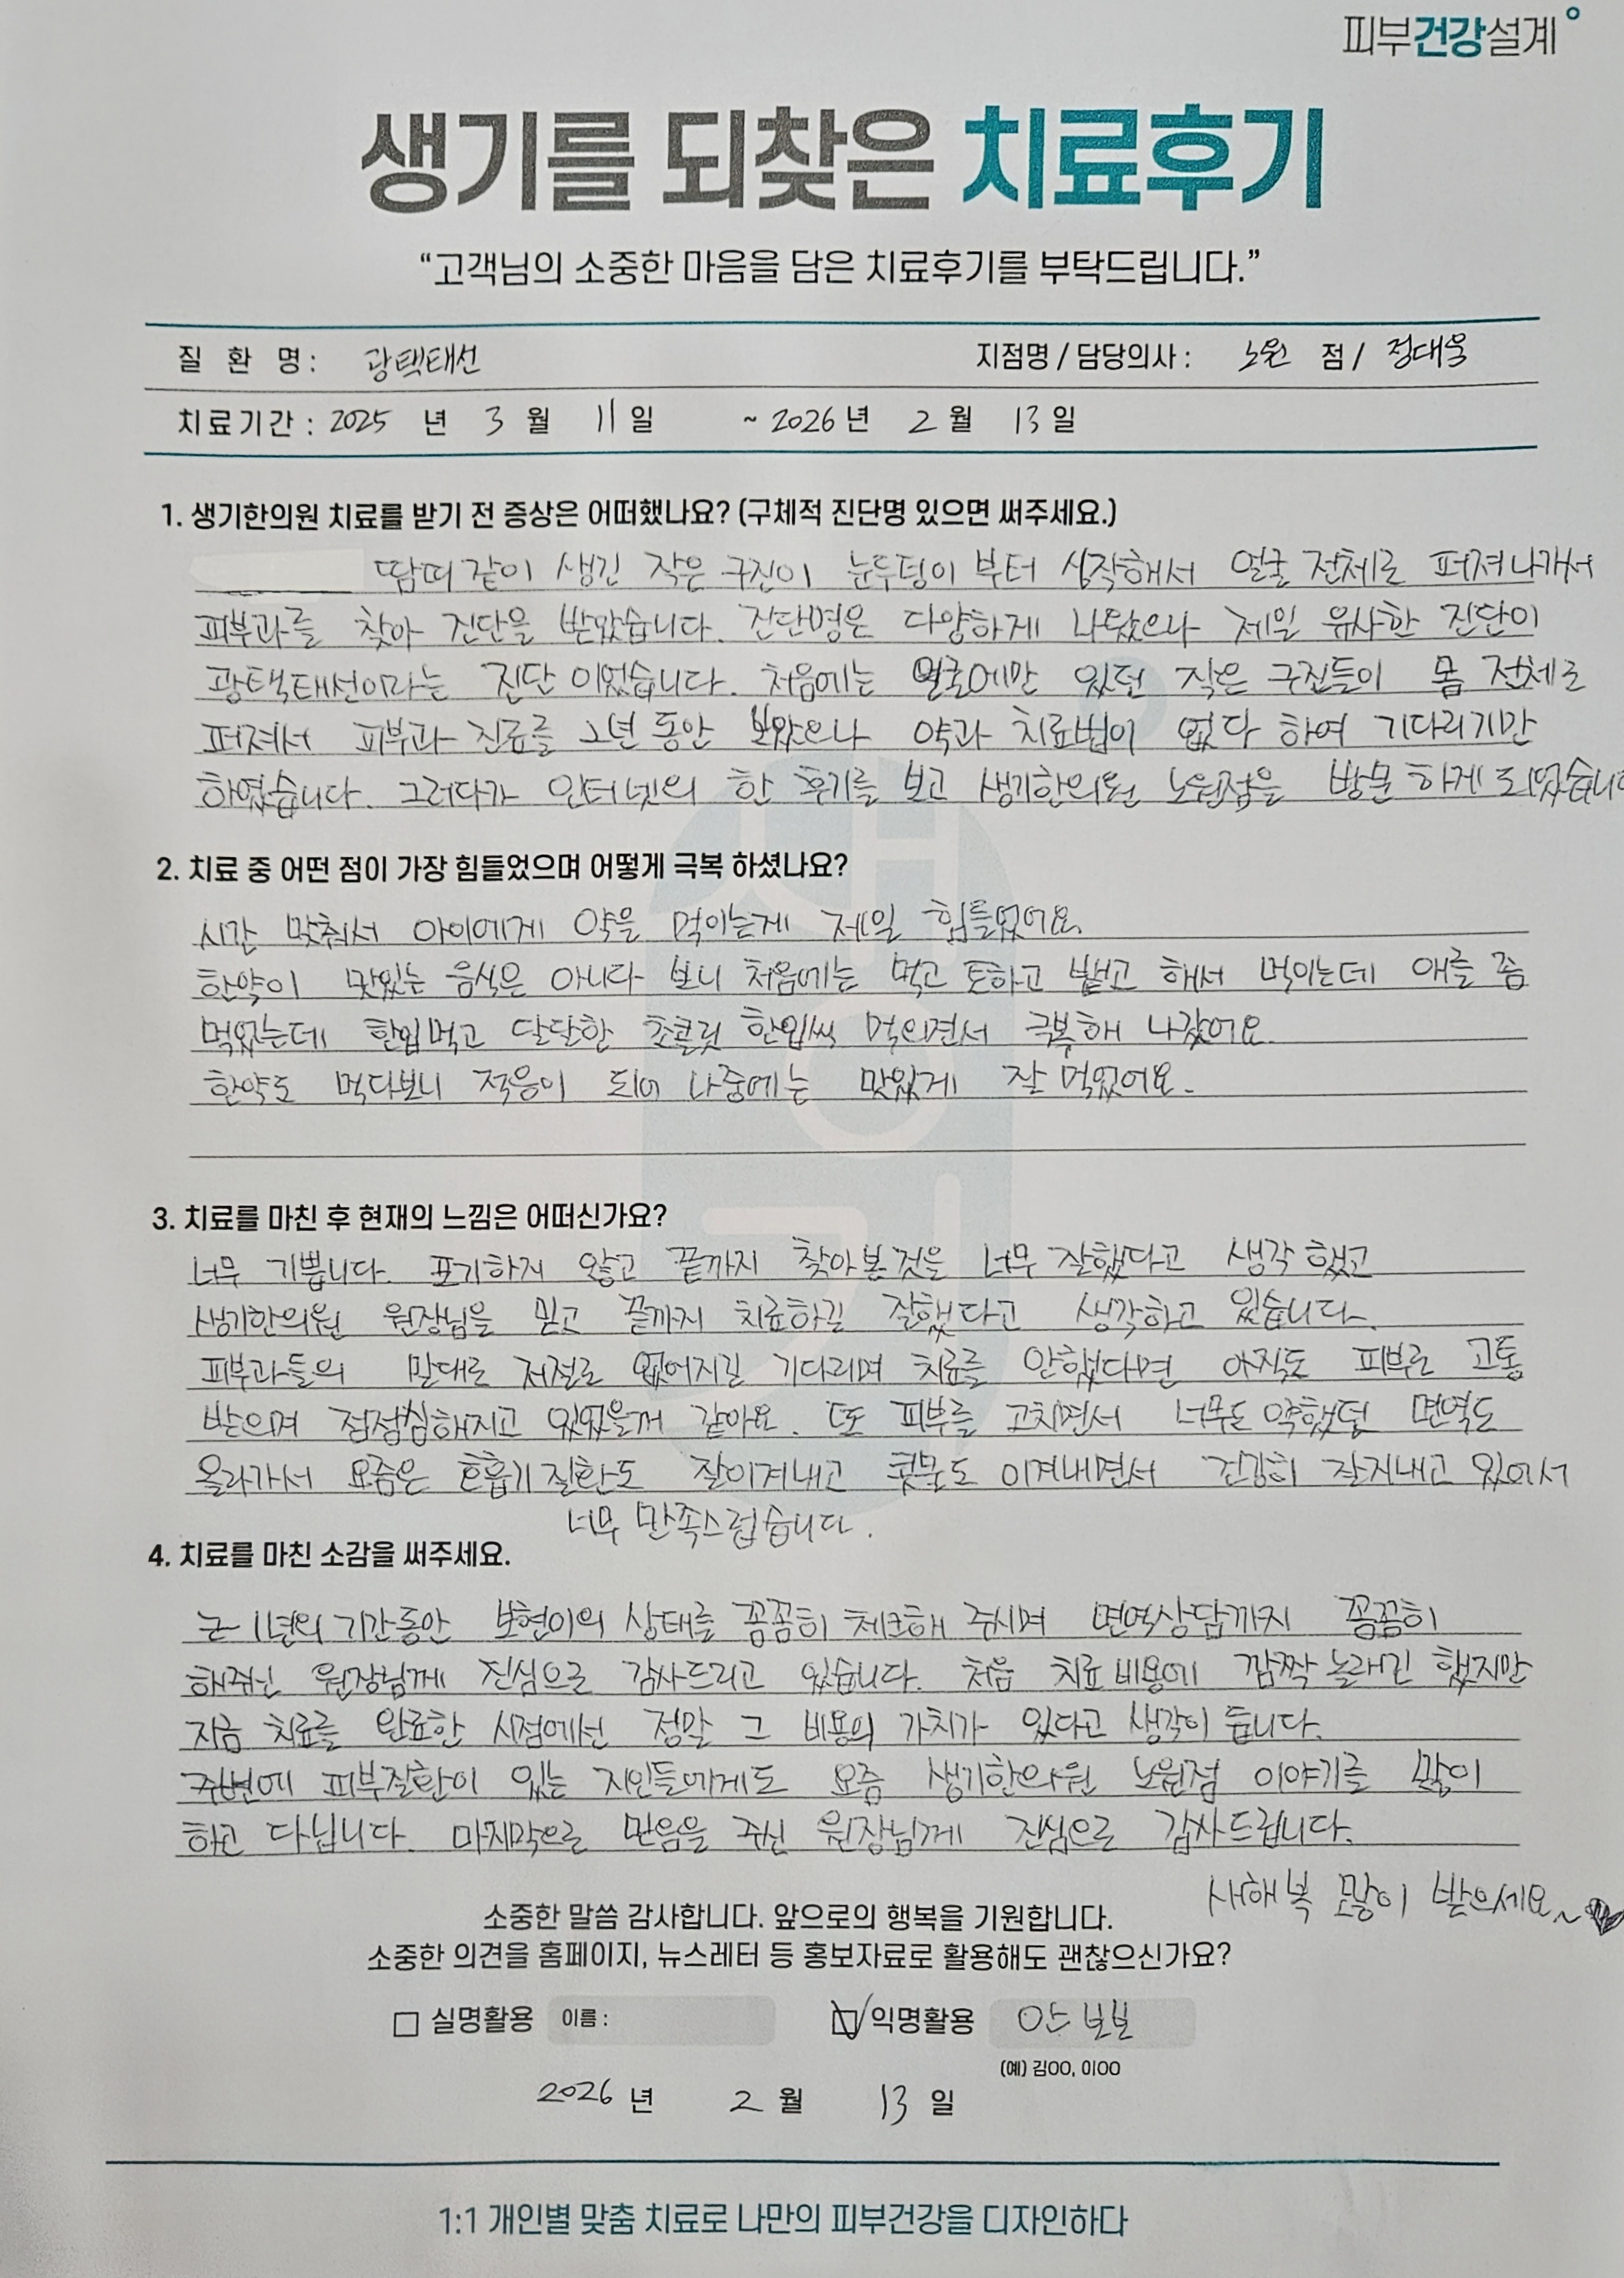 피부건강설계
생기를 되찾은 치료후기
“고객님의 소중한 마음을 담은 치료후기를 부탁드립니다.”
질 환 명 : 광택태선 지점명 / 담당의사 : 노원 점 / 정대웅
치료기간 : 2025 년 3 월 11 일 ~ 2026 년 2 월 13 일
1. 생기한의원 치료를 받기 전 증상은 어떠했나요? (구체적 진단명 있으면 써주세요.)
땀띠같이 생긴 작은 구진이 눈두덩이 부터 시작해서 얼굴 전체로 퍼져나가서
피부과를 찾아 진단을 받았습니다. 진단명은 다양하게 나왔으나 제일 유사한 진단이
광택태선이라는 진단 이었습니다. 처음에는 얼굴에만 있던 작은 구진들이 몸 전체로
퍼져서 피부과 진료를 2년 동안 보았으나 약과 치료법이 없다 하여 기다리기만
하였습니다. 그러다가 인터넷의 한 후기를 보고 생기한의원 노원점을 방문 하게 되었습니다
2. 치료 중 어떤 점이 가장 힘들었으며 어떻게 극복 하셨나요?
시간 맞춰서 아이에게 약을 먹이는게 제일 힘들었어요.
한약이 맛있는 음식은 아니다 보니 처음에는 먹고 토하고 뱉고 해서 먹이는데 애를 좀
먹었는데 한입먹고 달달한 초콜릿 한입씩 먹이면서 극복해 나갔어요.
한약도 먹다보니 적응이 되어 나중에는 맛있게 잘 먹었어요.
3. 치료를 마친 후 현재의 느낌은 어떠신가요?
너무 기쁩니다. 포기하지 않고 끝까지 찾아본것을 너무 잘했다고 생각 했고
생기한의원 원장님을 믿고 끝까지 치료하길 잘했다고 생각하고 있습니다.
피부과들의 말대로 저절로 없어지길 기다리며 치료를 안했다면 아직도 피부로 고통
받으며 점점심해지고 있었을꺼 같아요. 또 피부를 고치면서 너무도 약했던 면역도
올라가서 요즘은 호흡기 질환도 잘이겨내고 콧물도 이겨내면서 건강히 잘지내고 있어서
너무 만족스럽습니다.
4. 치료를 마친 소감을 써주세요.
근 1년의 기간동안 보현이의 상태를 꼼꼼히 체크해 주시며 면역상담까지 꼼꼼히
해주신 원장님께 진심으로 감사드리고 있습니다. 처음 치료비용에 깜짝 놀라긴 했지만
지금 치료를 완료한 시점에선 정말 그 비용의 가치가 있다고 생각이 듭니다.
주변에 피부질환이 있는 지인들에게도 요즘 생기한의원 노원점 이야기를 많이
하고 다닙니다. 마지막으로 믿음을 주신 원장님께 진심으로 감사드립니다.
새해 복 많이 받으세요~
소중한 말씀 감사합니다. 앞으로의 행복을 기원합니다.
소중한 의견을 홈페이지, 뉴스레터 등 홍보자료로 활용해도 괜찮으신가요?
실명활용 이름 : 익명활용 안보보
(예) 김OO, 이OO
2026 년 2 월 13 일
1:1 개인별 맞춤 치료로 나만의 피부건강을 디자인하다
생기